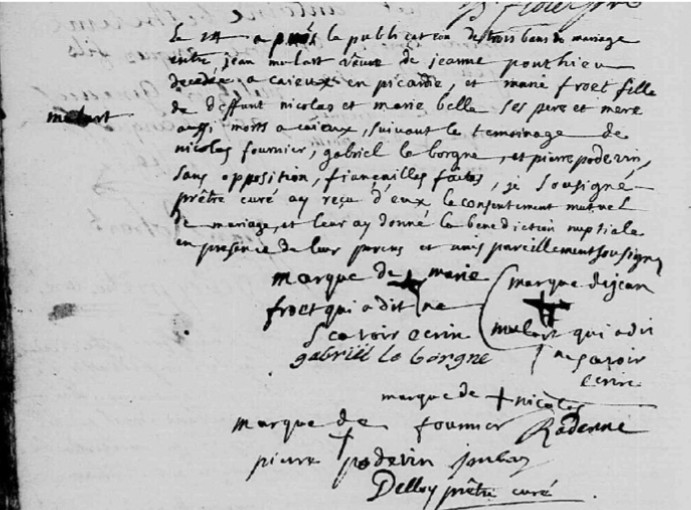 Le 14 après la publication de trois bans de mariage
entre jean mulart veuve de jeanne ponthieu
decedée a caieux en picardie, et marie froet fille
de deffunt nicolas et marie bella ses pere et mere
mulart
aussi morts a caieux, suivant le temoinage de
nicolas fournier, gabriel le borgne, et pierre podevin,
sans opposition, fiancailles faites, je sousigné
prêtre curé ay reçu d'eux le consentement mutuel
de mariage, et leur ay donné la benediction nuptiale
en presence de leur parens et amis pareillement sousigné
marque de + marie
froet qui a dit ne
scavoir ecrire
marque de jean
mulart qui a dit
ne scavoir
ecrire
gabriël le borgne
marque de + nicolas
fournier
marque de
pierre podevin
Delloy prêtre curé